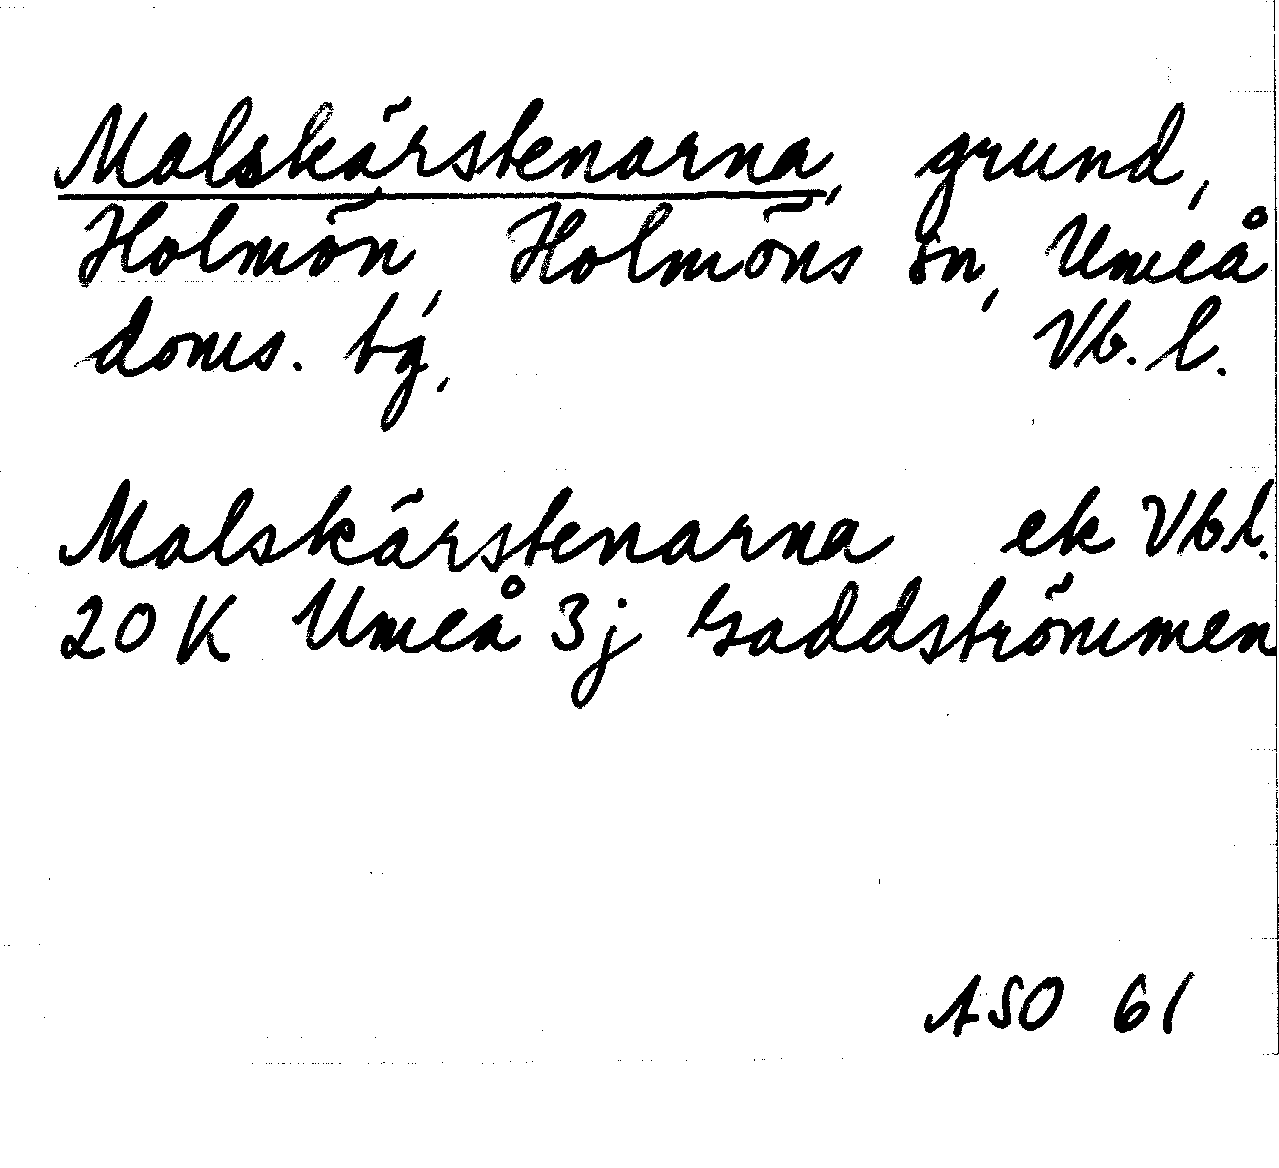 Malskärstenarna, grund,
Holmön, Holmöns sn, Umeå
doms. tg, Vb. l.
Malskärstenarna ek Vb l.
20 K Umeå 3j Gaddströmmen
ASO 61